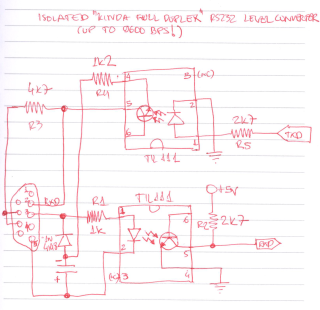 ISOLATED "KINDA FULL DUPLEX" RS232 LEVEL CONVERTER
(UP TO 9600 BPS!)
1K2
R4
4
3 (NC)
4K7
R3
5
2
6
1
TIL111
2K7
R5
TXD
RXD
R1
1K
TIL111
1
6
2
5
(NC) 3
4
+5V
R2
2K7
RXD
1N
4148
+